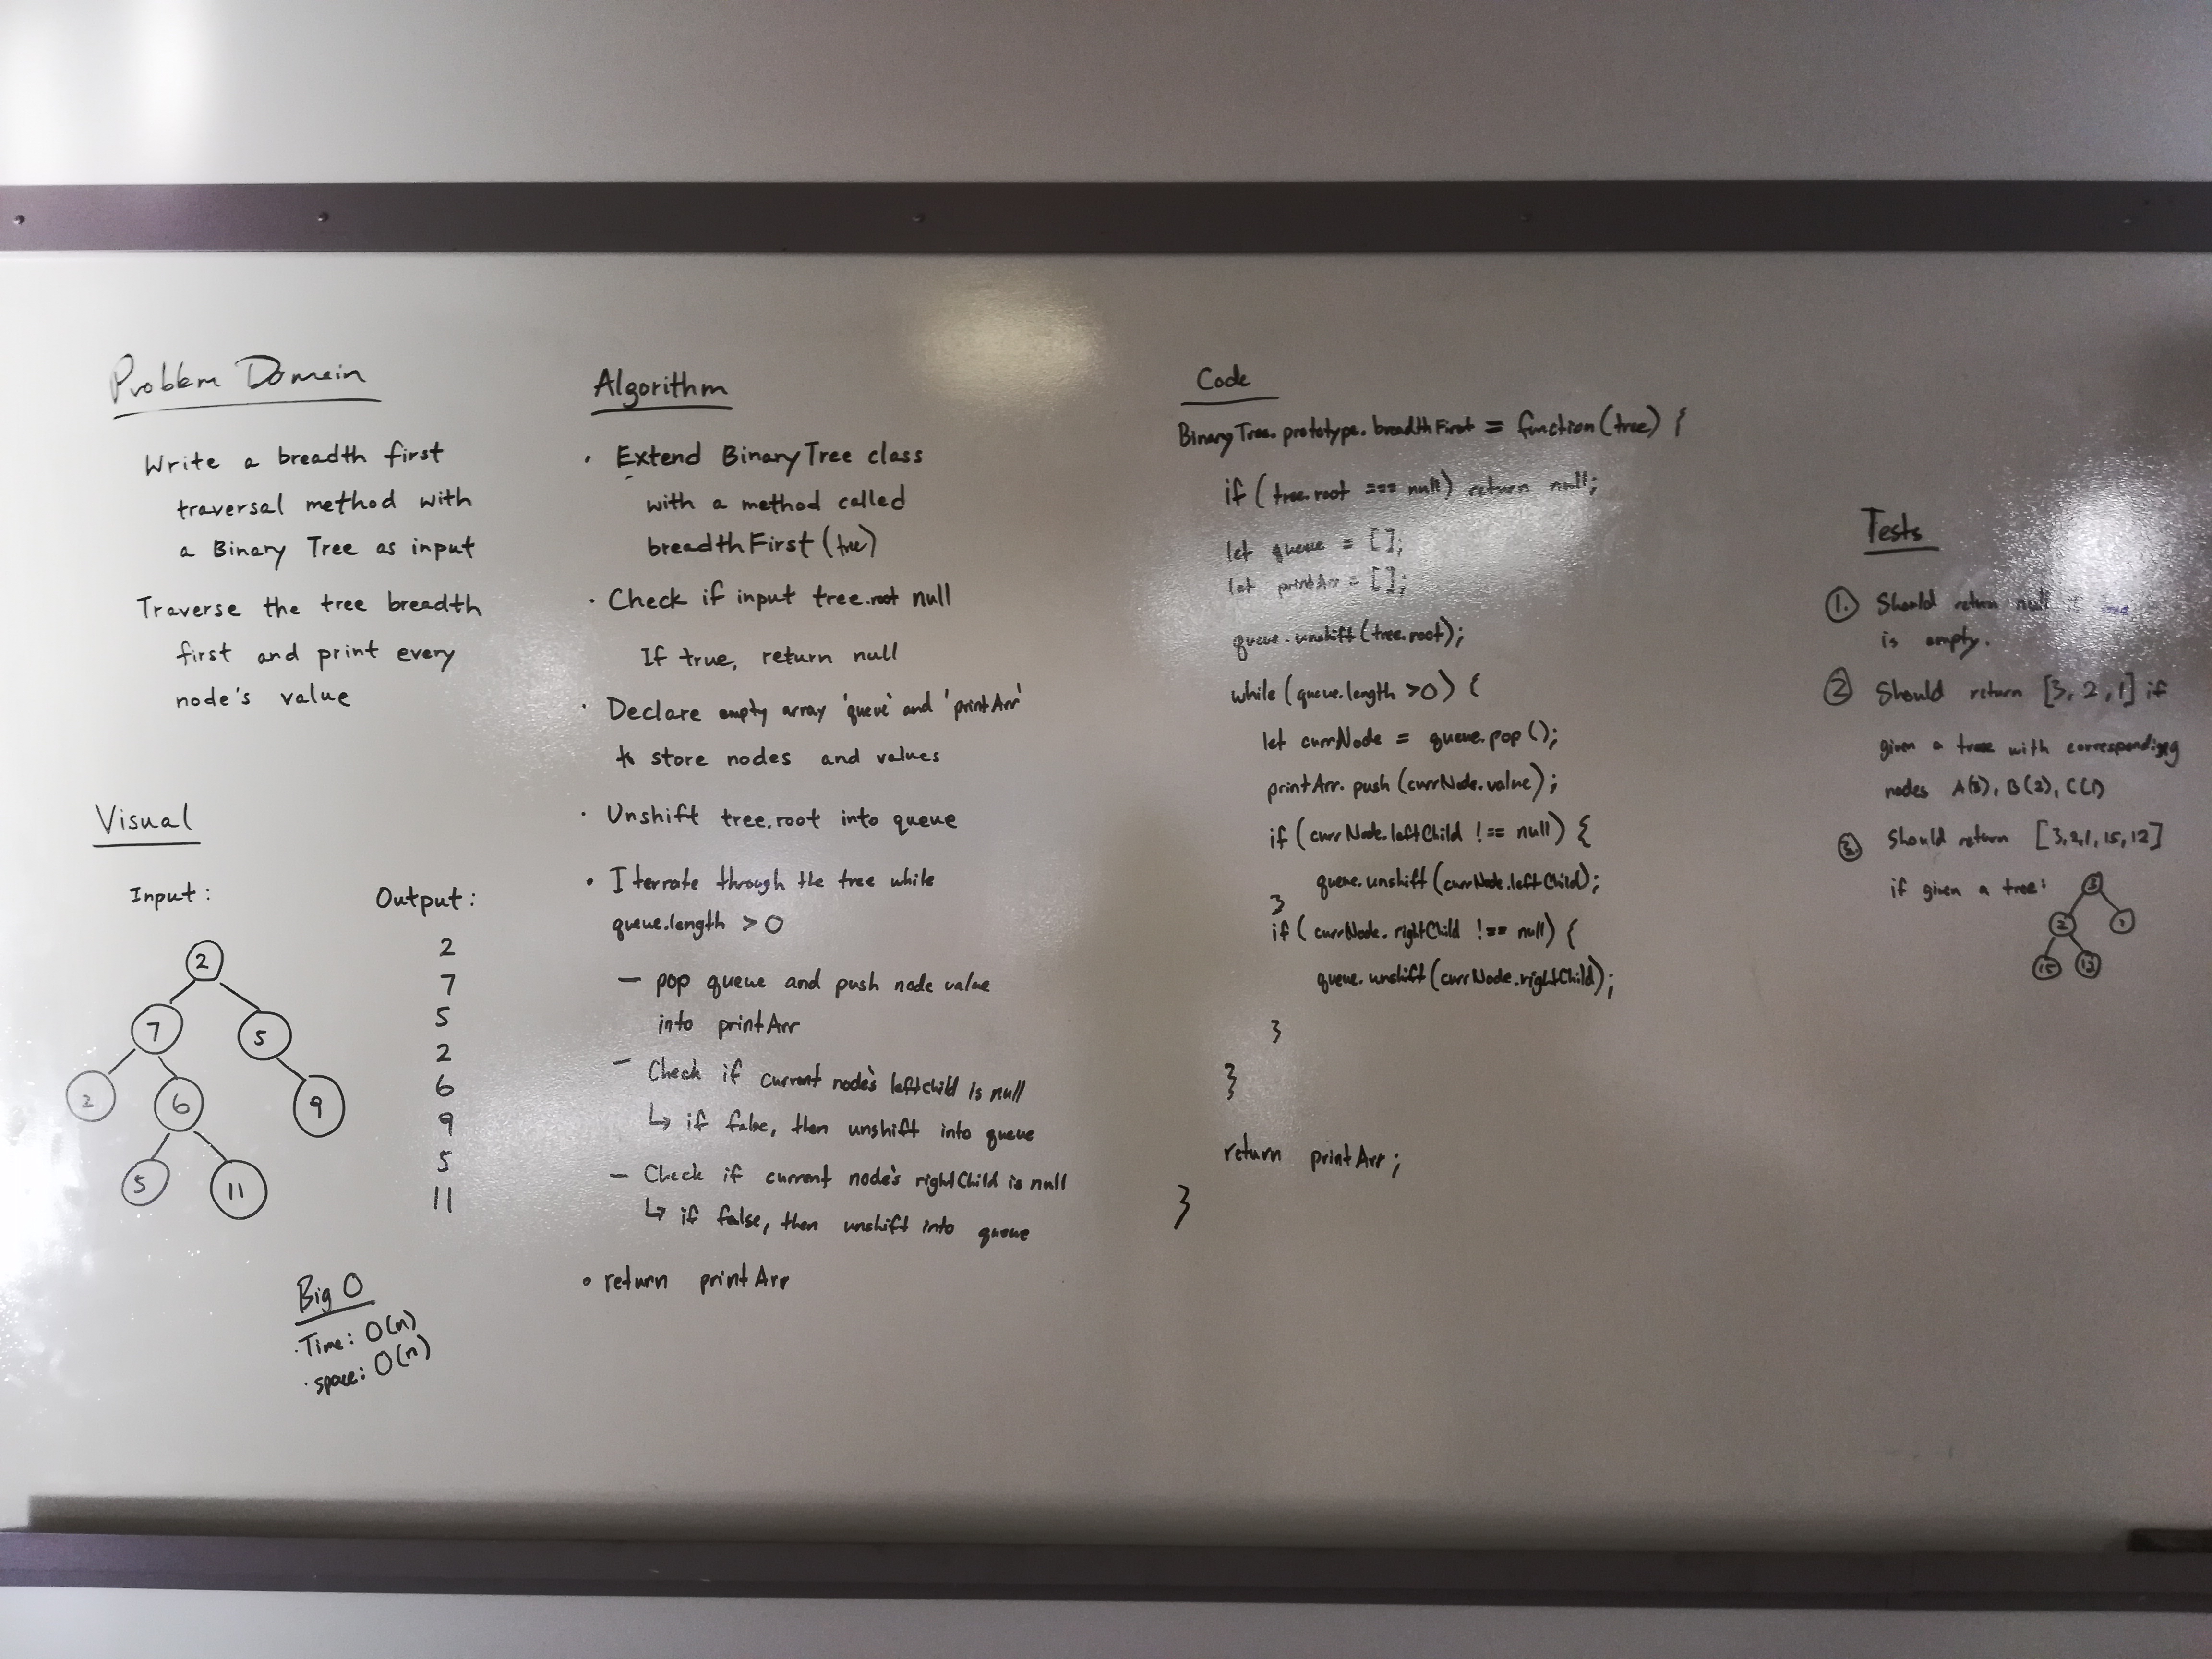 Problem Domain
Write a breadth first
traversal method with
a Binary Tree as input
Traverse the tree breadth
first and print every
node's value
Visual
Input:
2
7
5
2
6
9
5
11
Output:
2
7
5
2
6
9
5
11
Big O
· Time: O(n)
· space: O(n)
Algorithm
· Extend BinaryTree class
with a method called
breadthFirst(tree)
· Check if input tree.root null
If true, return null
· Declare empty array 'queue' and 'printArr'
to store nodes and values
· Unshift tree.root into queue
· Iterrate through the tree while
queue.length > 0
– pop queue and push node value
into printArr
– Check if current node's leftchild is null
↳ if false, then unshift into queue
– Check if current node's rightChild is null
↳ if false, then unshift into queue
· return printArr
Code
BinaryTree.prototype.breadthFirst = function(tree) {
if (tree.root === null) return null;
let queue = [];
let printArr = [];
queue.unshift(tree.root);
while (queue.length >0) {
let currNode = queue.pop();
printArr.push(currNode.value);
if (currNode.leftChild !== null) {
queue.unshift(currNode.leftChild);
}
if (currNode.rightChild !== null) {
queue.unshift(currNode.rightChild);
}
}
return printArr;
}
Tests
1. Should return null
is empty.
2 Should return [3, 2, 1] if
given a tree with corresponding
nodes A(3), B(2), C(1)
3. Should return [3,2,1,15,12]
if given a tree:
3
2
1
15
12